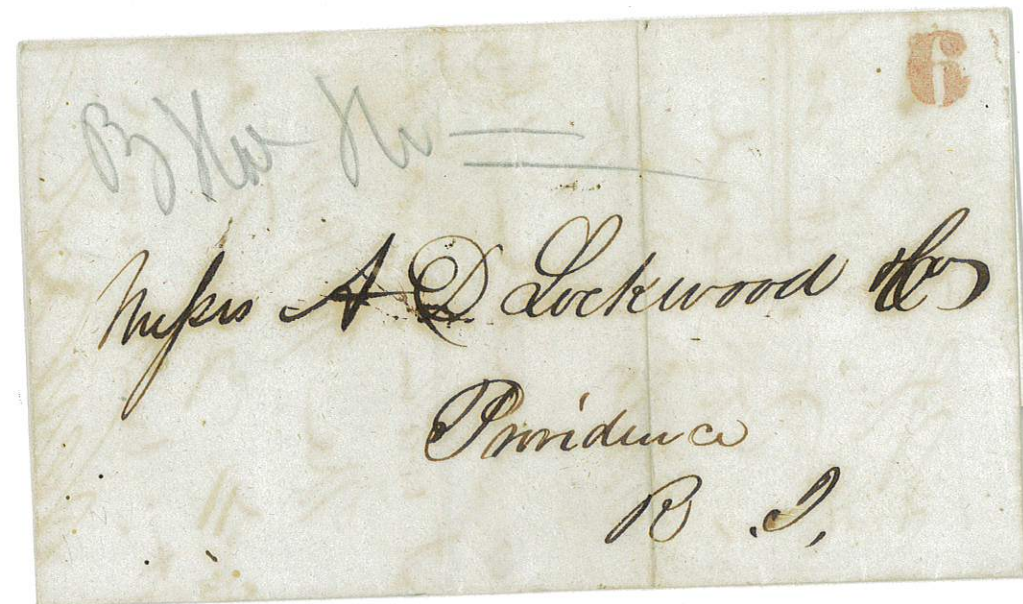 6
Messrs A D Lockwood & Co
Providence
R. I.